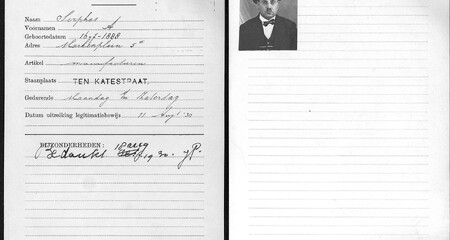 Naam Serphos
Voornamen A
Geboortedatum 1888
Adres 5
Artikel manufacturen
Staanplaats TEN KATESTRAAT.
Gedurende Maandag t/m Zaterdag
Datum uitreiking legitimatiebewijs 11 Aug '30
BIJZONDERHEDEN:
Bedankt 18 aug 1930.